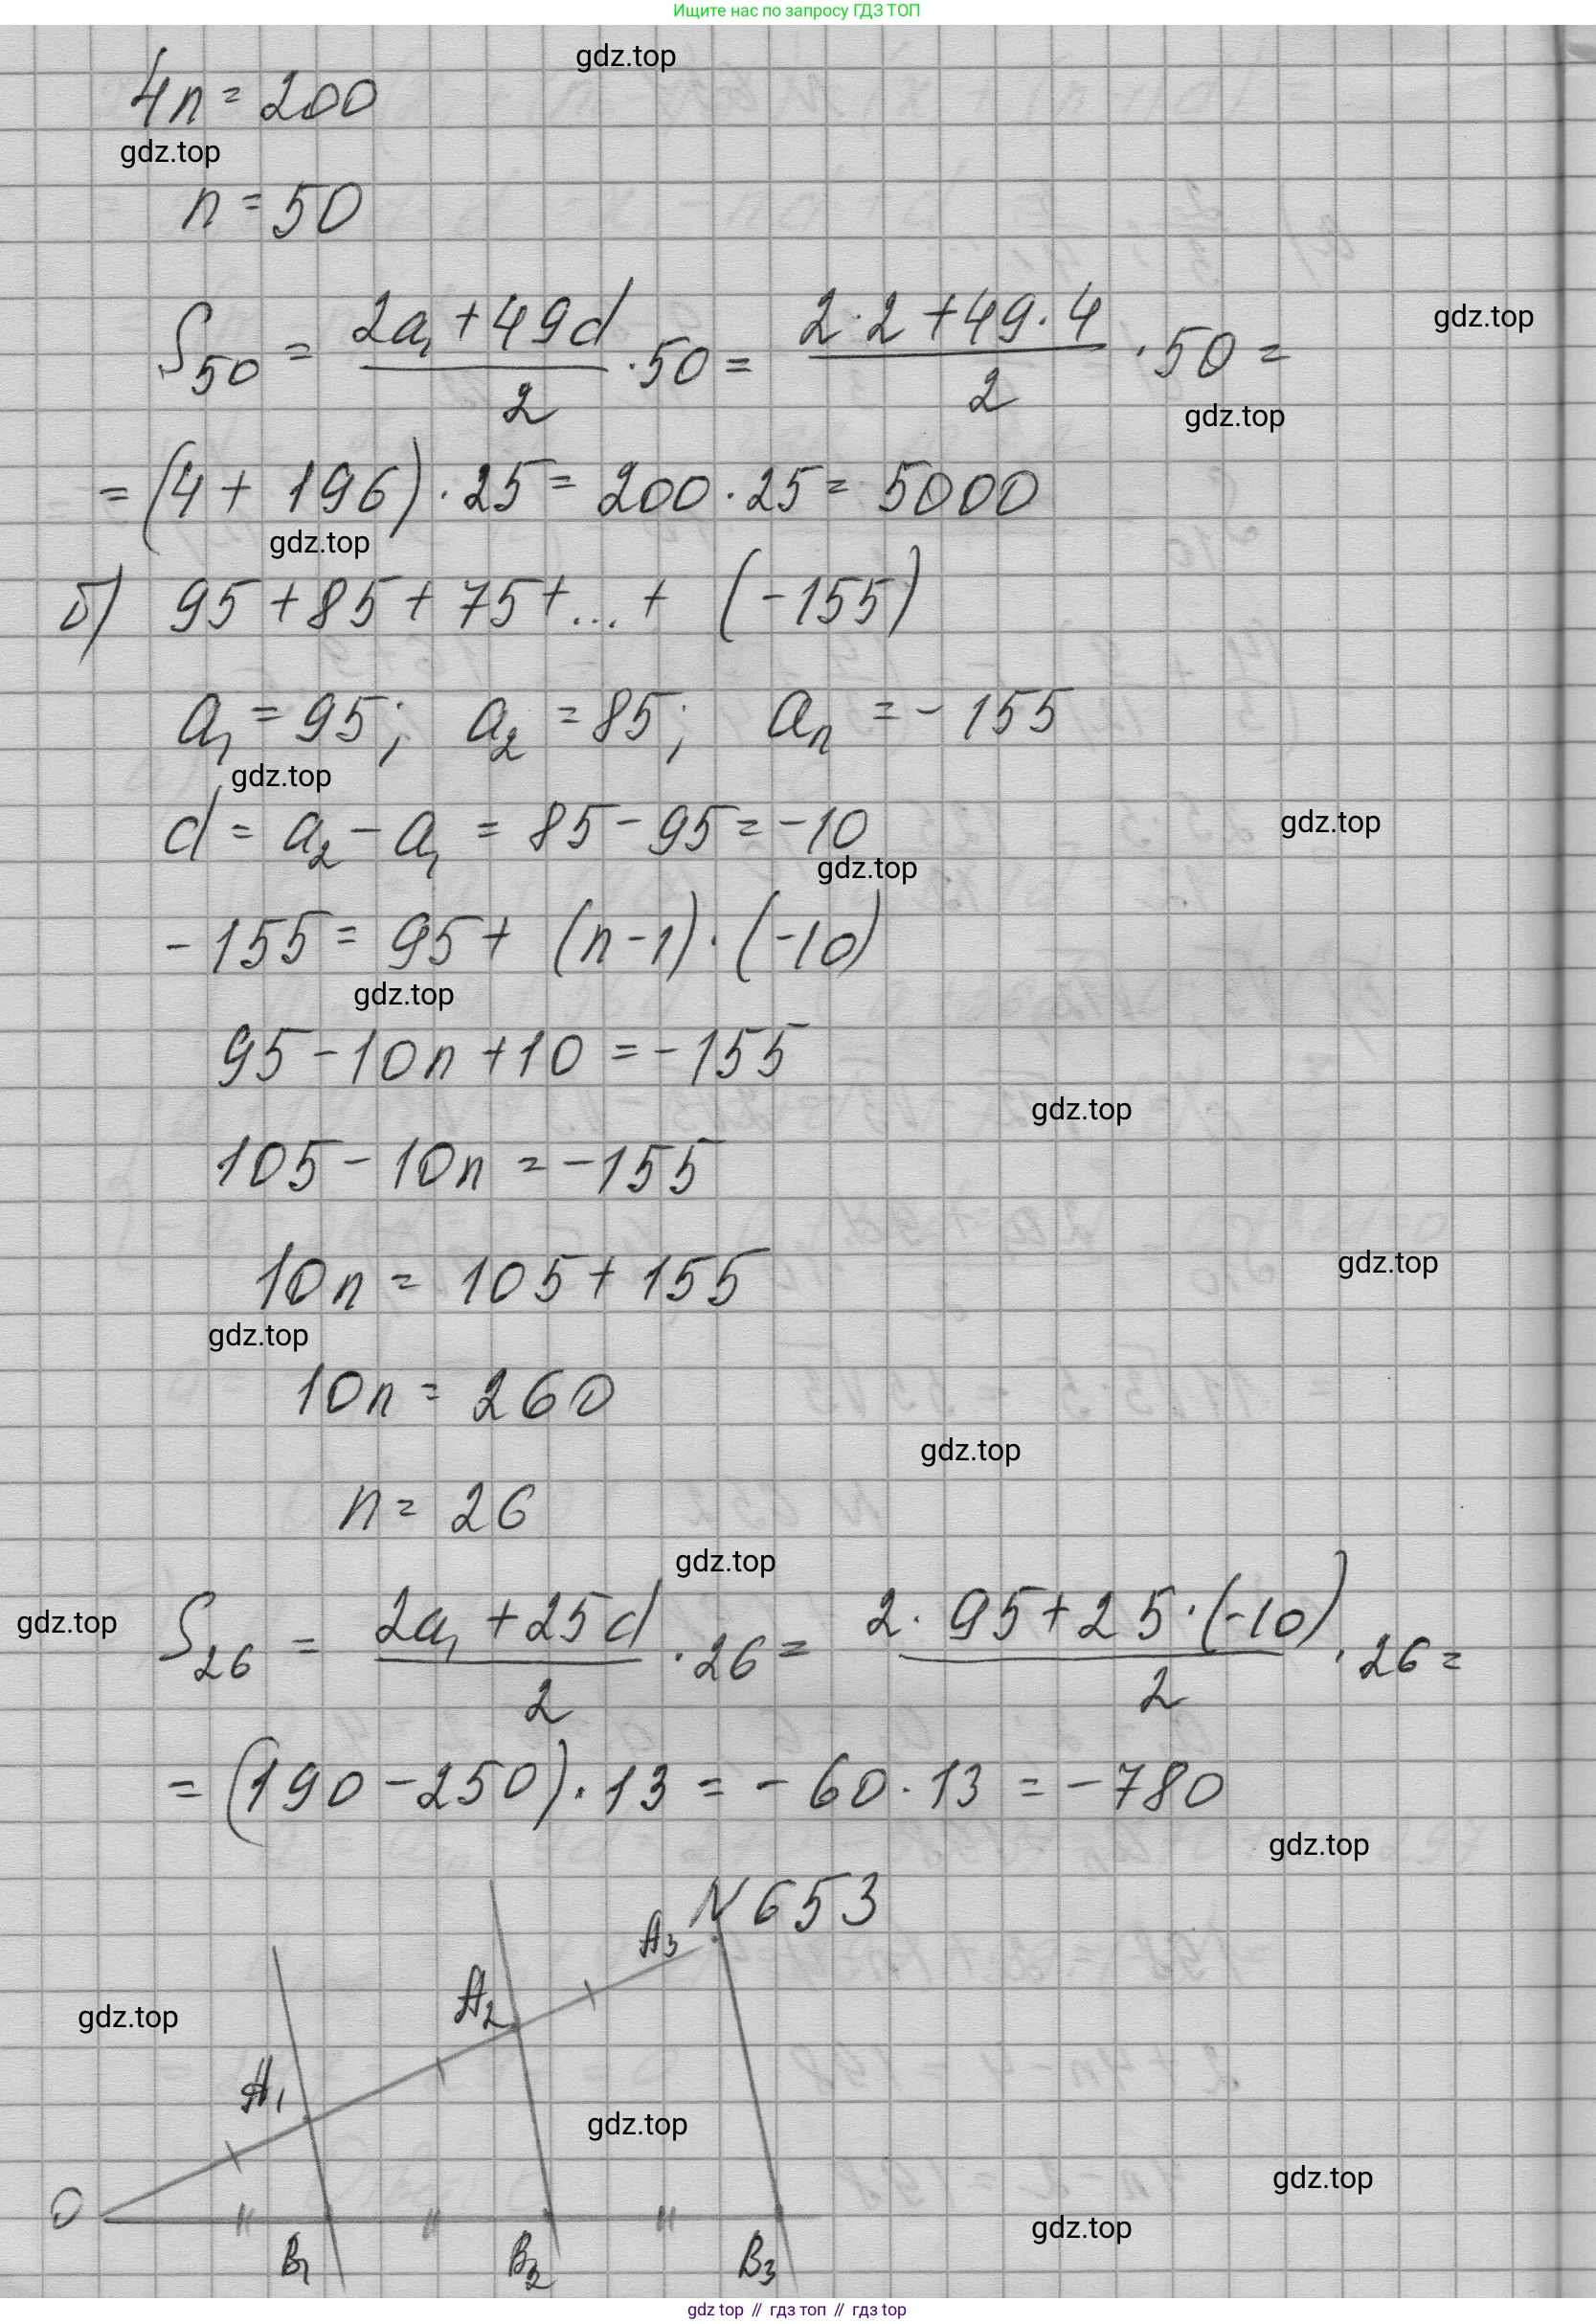 Ищите нас по запросу ГДЗ ТОП
gdz.top
4n = 200
gdz.top
n = 50
S₅₀ = (2a₁ + 49d)/2 · 50 = (2·2 + 49·4)/2 · 50 =
gdz.top
gdz.top
= (4 + 196) · 25 = 200 · 25 = 5000
gdz.top
б) 95 + 85 + 75 + ... + (-155)
a₁ = 95; a₂ = 85; aₙ = - 155
gdz.top
d = a₂ - a₁ = 85 - 95 = -10
gdz.top
gdz.top
- 155 = 95 + (n - 1) · (-10)
gdz.top
95 - 10n + 10 = - 155
gdz.top
105 - 10n = - 155
10n = 105 + 155
gdz.top
gdz.top
10n = 260
gdz.top
n = 26
gdz.top
gdz.top
S₂₆ = (2a₁ + 25d)/2 · 26 = (2 · 95 + 25 · (-10))/2 · 26 =
= (190 - 250) · 13 = - 60 · 13 = - 780
gdz.top
N 653
A₃
A₂
gdz.top
A₁
gdz.top
gdz.top
O
gdz.top
B₁ B₂ B₃
gdz top // гдз топ // гдз top